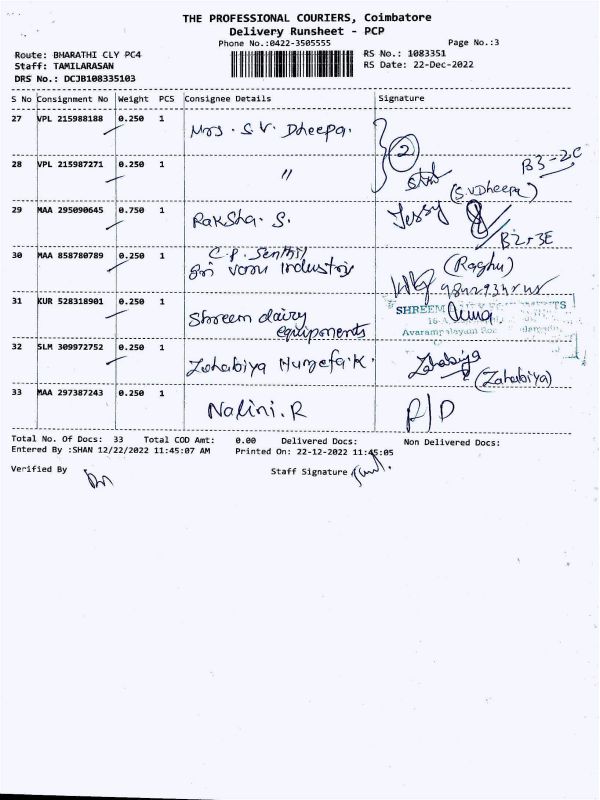 THE PROFESSIONAL COURIERS, Coimbatore
Delivery Runsheet - PCP
Phone No.:0422-3505555
Page No.:3
Route: BHARATHI CLY PC4
RS No.: 1083351
Staff: TAMILARASAN
RS Date: 22-Dec-2022
DRS No.: DCJB108335103
S No Consignment No Weight PCS Consignee Details Signature
27 VPL 215988188 0.250 1 Mrs. S.V. Dheepa.
28 VPL 215987271 0.250 1 " 2 B3-2C
(S.V Dheepa)
29 MAA 295090645 0.750 1 Raksha. S. Jessy
B2 3E
30 MAA 858780789 0.250 1 C.P. Senthil (Raghu)
Sri varu industriy
31 KUR 528318901 0.250 1 Shreem dairy SHREEM
equipments Avarampalayam
32 SLM 309972752 0.250 1 Zahabiya Huzefa.K. Zahabiya
(Zahabiya)
33 MAA 297387243 0.250 1 Nalini.R R/D
Total No. Of Docs: 33 Total COD Amt: 0.00 Delivered Docs: Non Delivered Docs:
Entered By :SHAN 12/22/2022 11:45:07 AM Printed On: 22-12-2022 11:45:05
Verified By Staff Signature